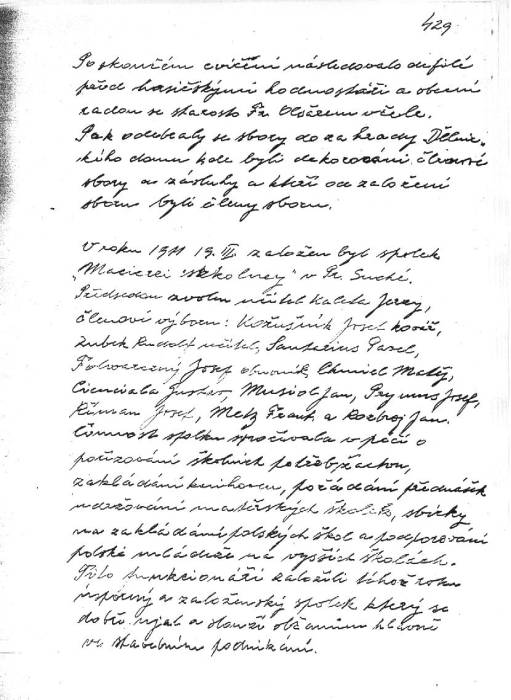 429
Po skončém cvičení následovalo defilé
před hasičskými hodnostáři a obecní
radou se starostou Fr. Olšarem včele.
Pak odebraly se sbory do zahrady Dělnic-
kého domu kde byli dekorováni členové
sboru za zásluhy a kteří od založení
sboru byli členy sboru.
V roku 1911 19. III. založen byl spolek
„Macierzi szkolney" v Pr. Suché.
Předsedou zvolen učitel Kaleta Jerzy,
členové výboru: Kožušník Josef kovář,
Zubek Rudolf učitel, Santarius Pavel,
Folwarczny Josef obuvník, Chmiel Matěj,
Cienciala Gustav, Musiol Jan, Prymus Josef,
Josef, Metz Frant. a Rozbroj Jan.
Činnost spolku spočívala v péči o
pořizování školních potřeb žactvu,
zakládání knihoven, pořádání přednášek
udržování mateřských školek, sbírky
na zakládání polských škol a podporování
polské mládeže na vyšších školách.
Tito funkcionáři založili téhož roku
úsporný a založenský spolek který se
dobře ujal a slouží občanům hlavně
ve stavebním podnikání.